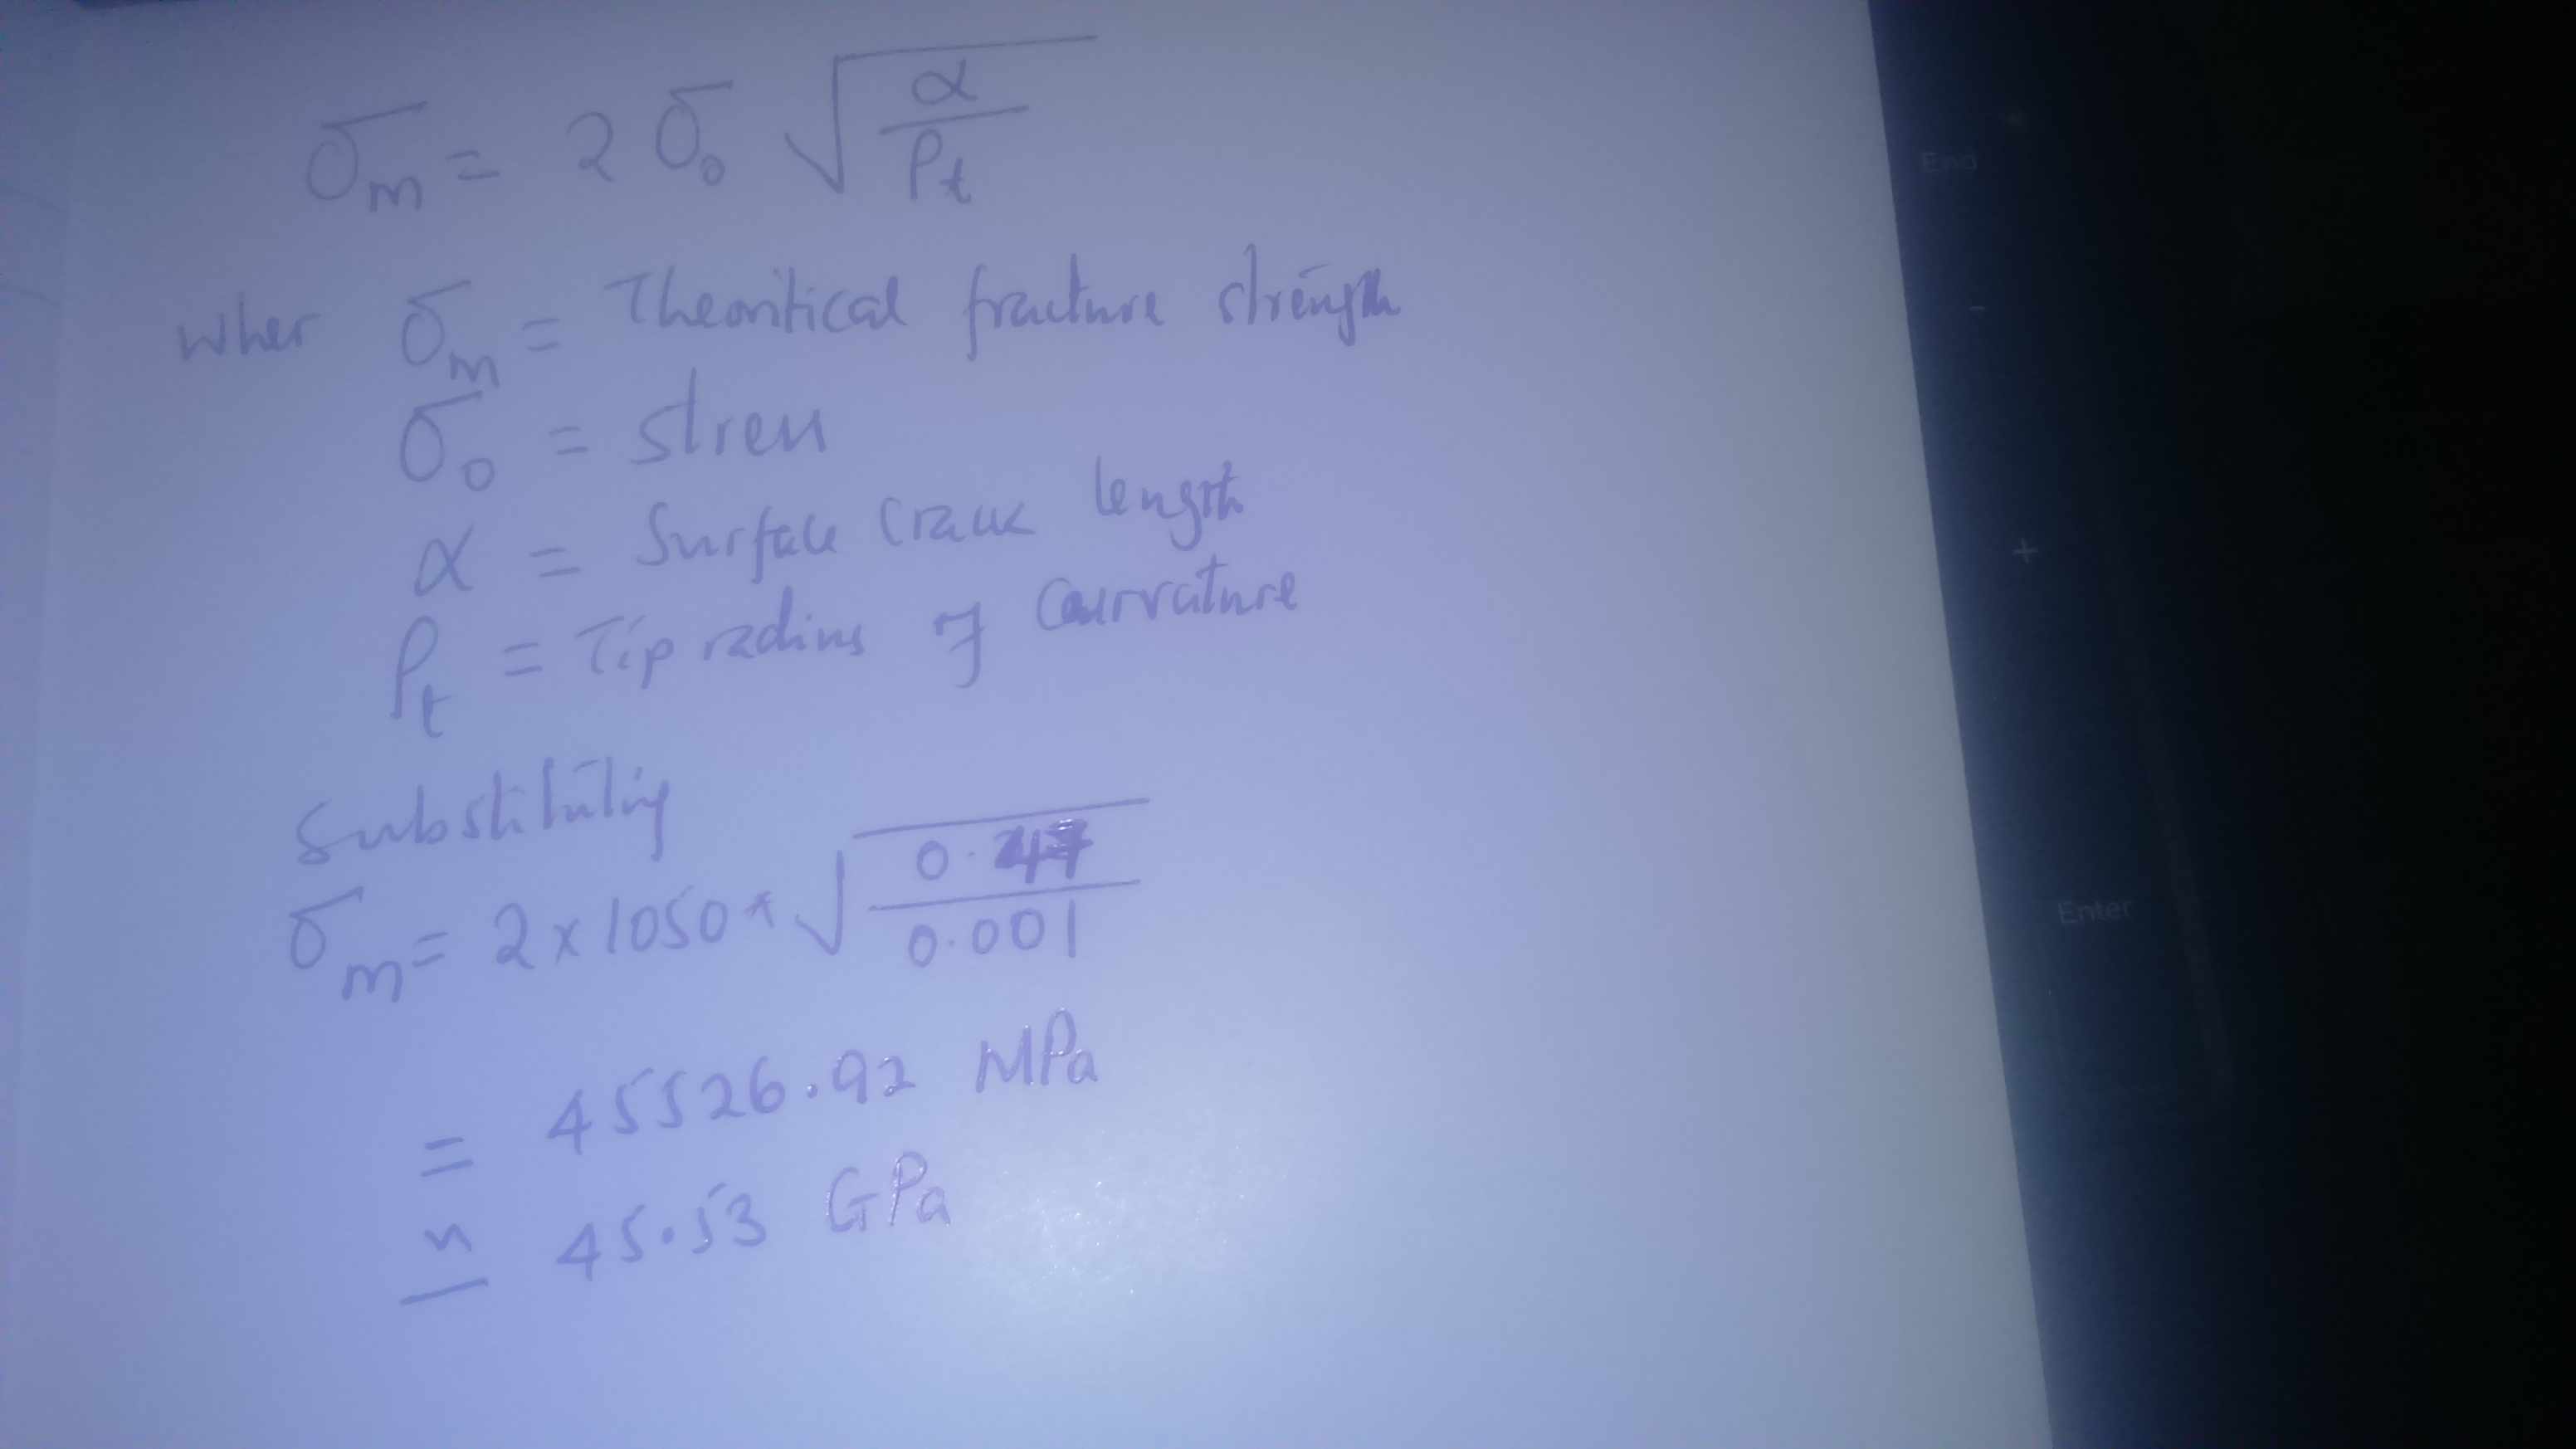 σm = 2 σo √(α/ρt)
wher σm = Theoritical fracture strength
σo = stress
α = Surface crack length
ρt = Tip radius of Curvature
Substituting
σm = 2 x 1050 * √(0.47/0.001)
= 45526.92 MPa
≃ 45.53 GPa
End
-
+
Enter